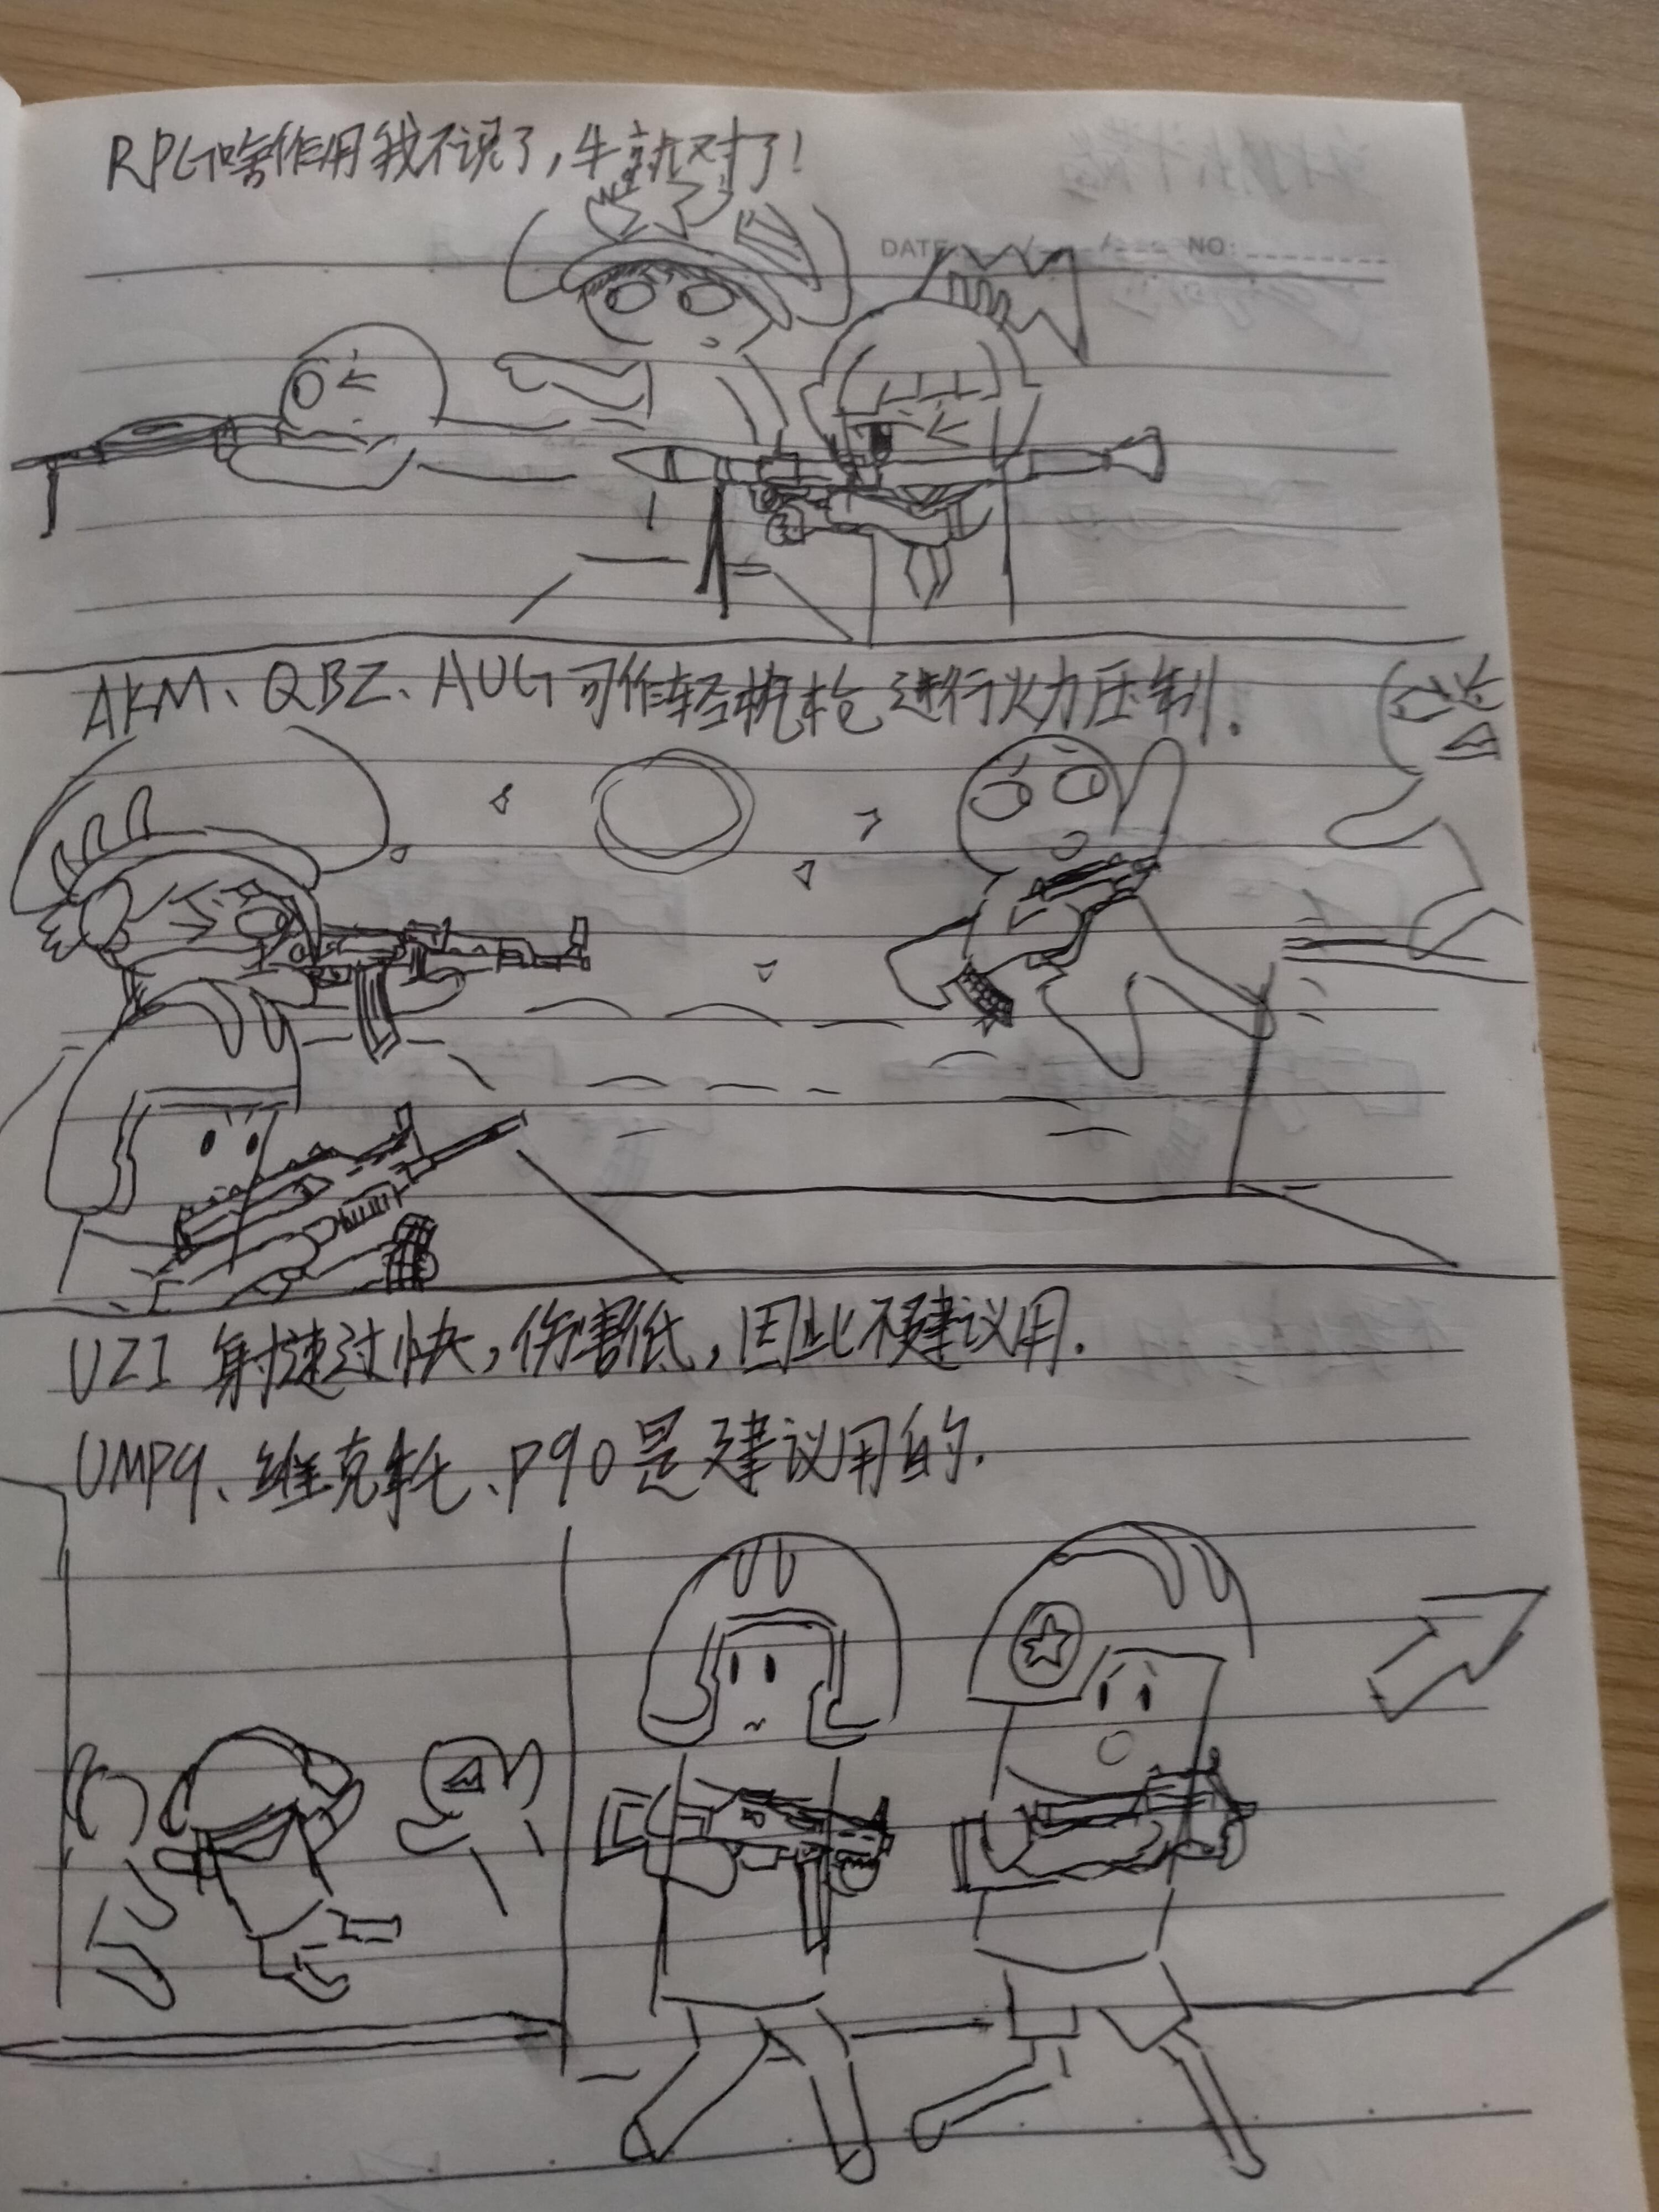 RPG啥作用我不说了,牛就对了!
DATE: NO:
AKM、QBZ、AUG可作轻机枪进行火力压制.
UZI 射速过快,伤害低,因此不建议用.
UMP9、维克托、P90是建议用的.